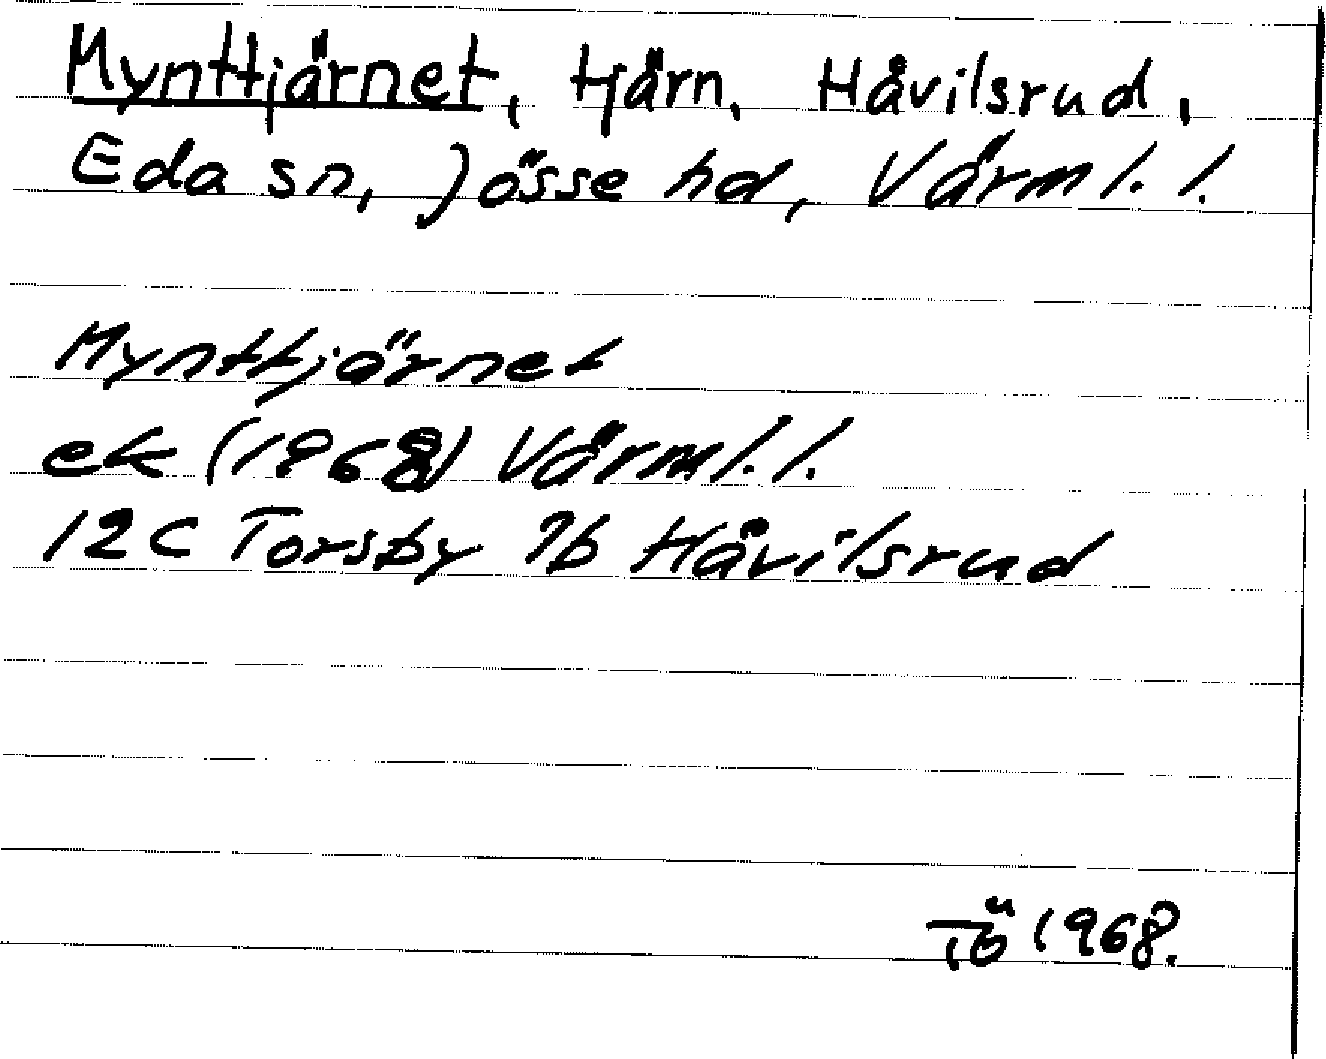 Mynttjärnet, tjärn, Håvilsrud,
Eda sn, Jösse hd, Värml. l.
Mynttjärnet
ek (1968) Värml. l.
12C Torsby 7b Håvilsrud
TÖ 1968.